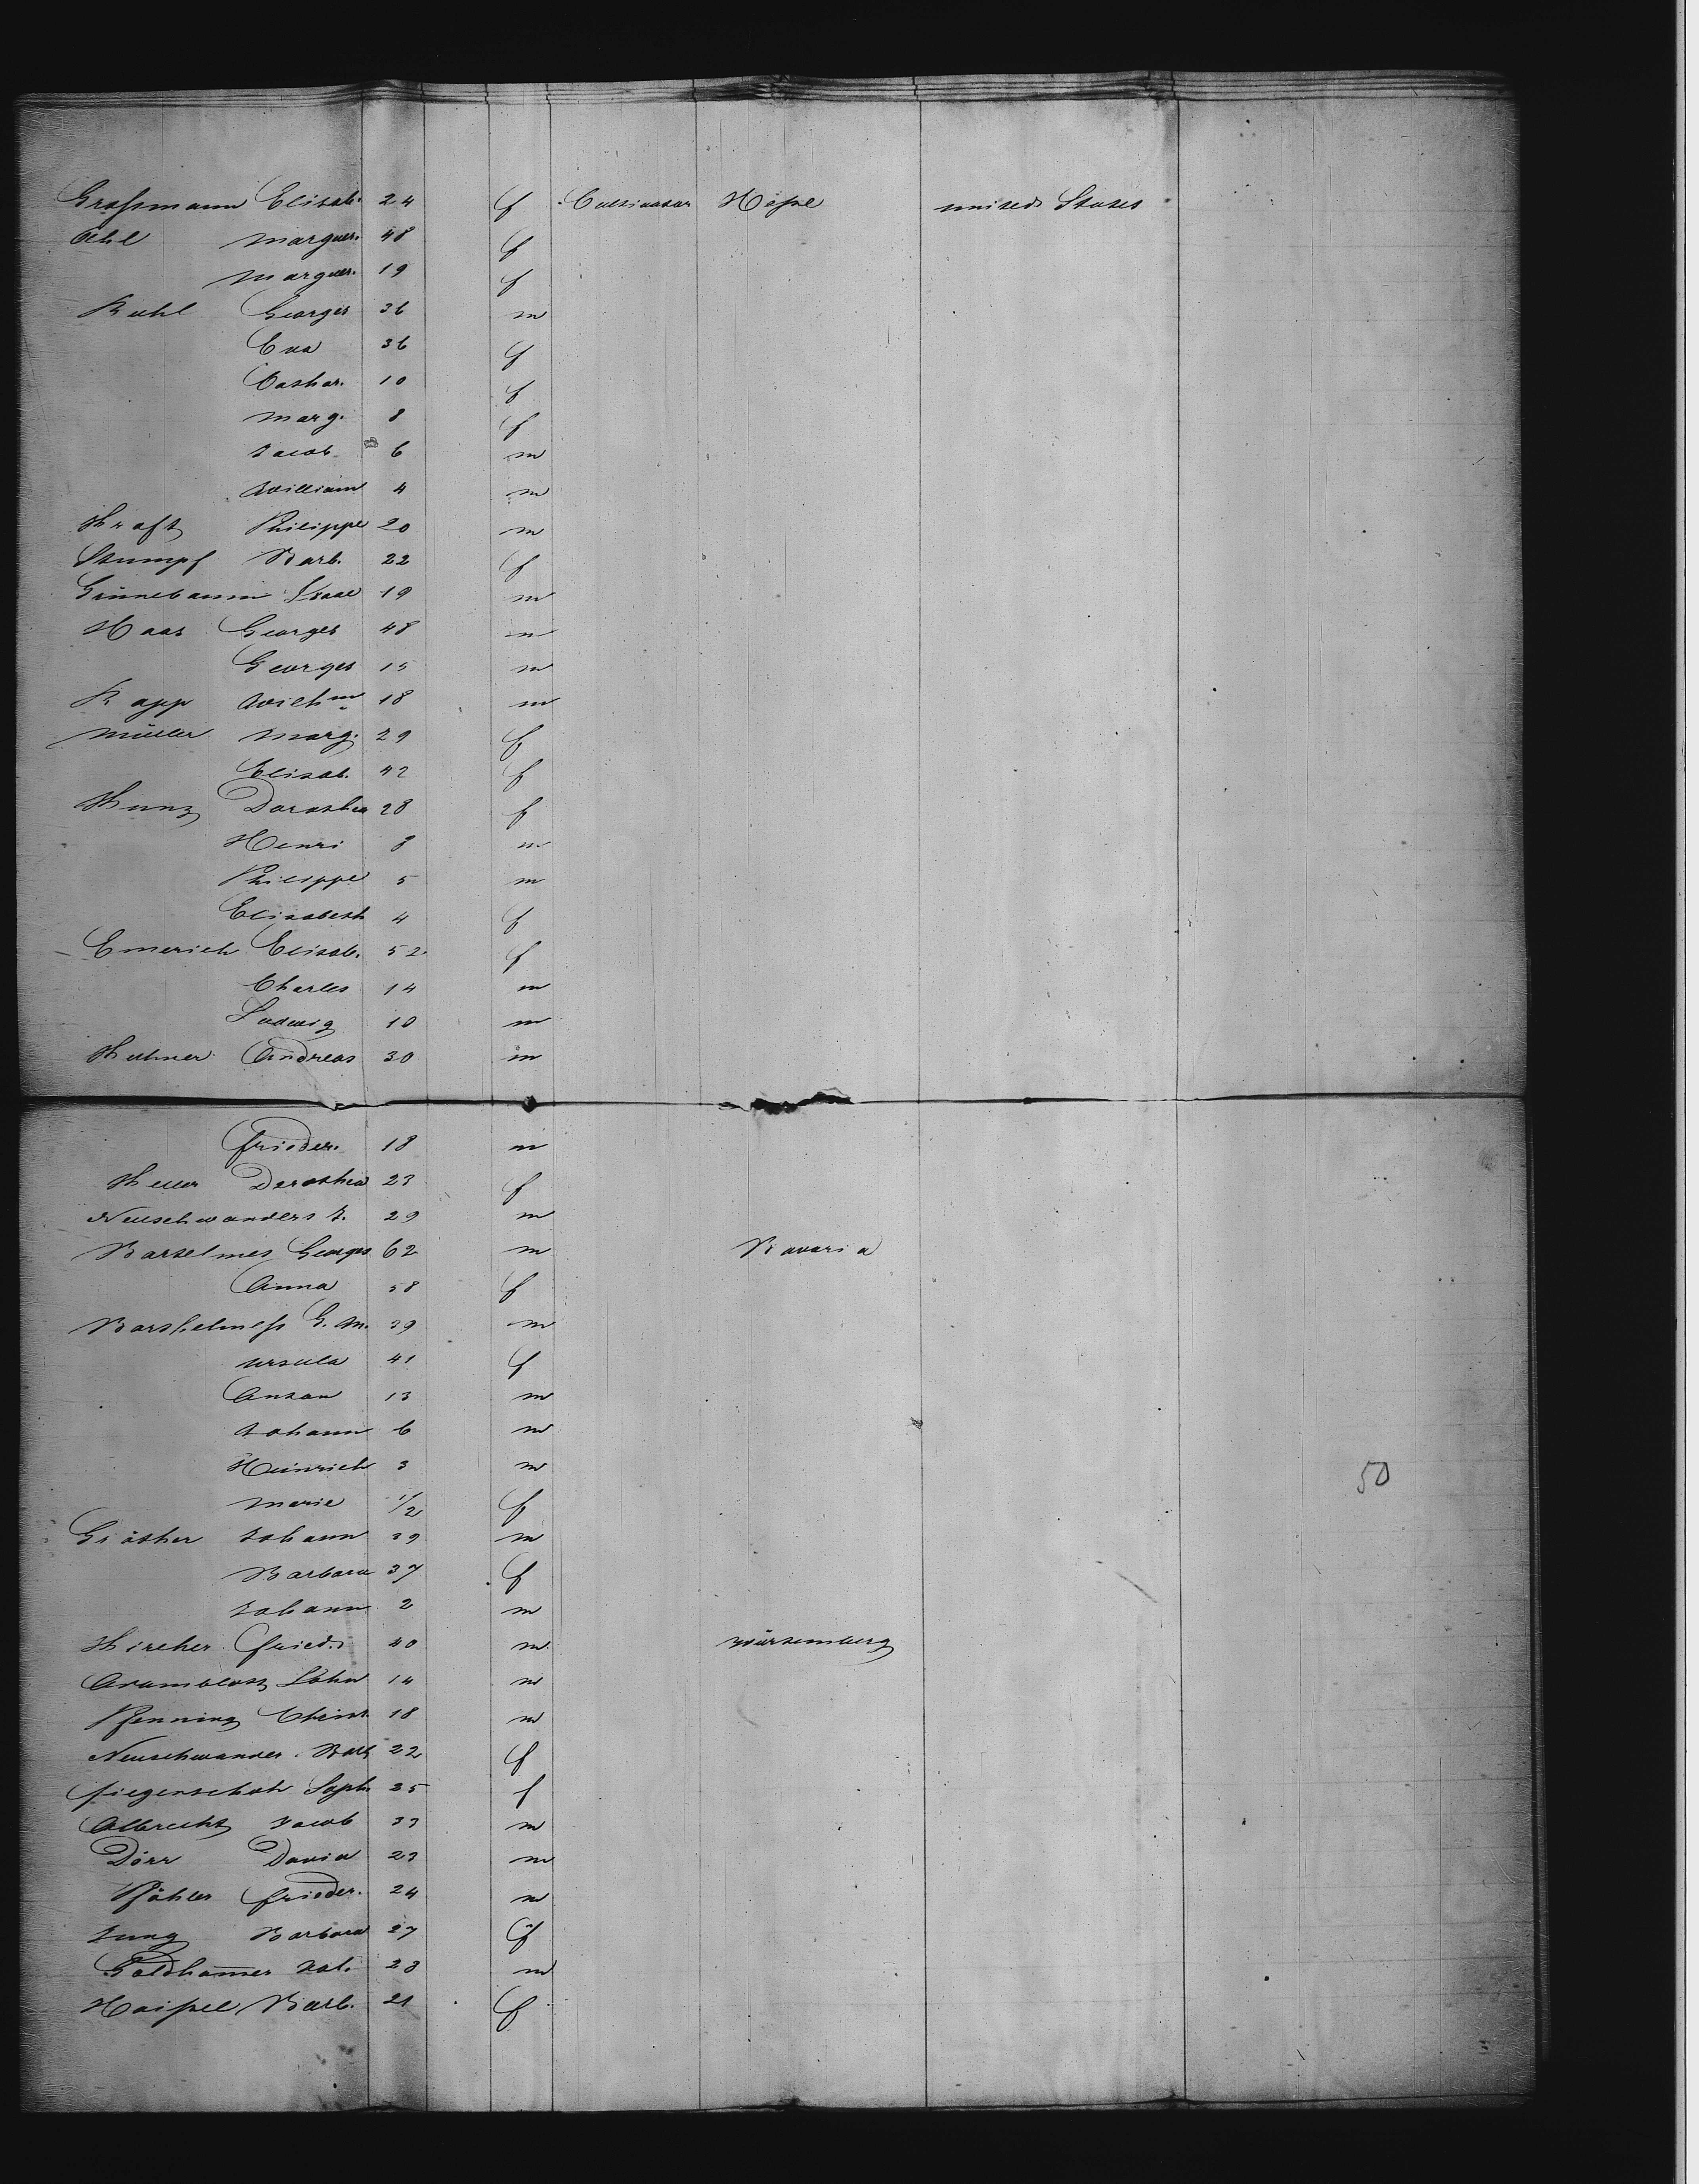 Großmann Elisab. 24 f Cultivator Heße united States
Uhl marguer. 48 f
marguer. 19 f
Ruhl Georges 36 m
Eva 36 f
Cathar. 10 f
marg. 8 f
Jacob 6 m
William 4 m
Kraft Philippe 20 m
Stumpf Barb. 22 f
Grünebaum Isaac 19 m
Haas Georges 48 m
Georges 15 m
Rapp Wilhm 18 m
Müller marg. 29 f
Elisab. 42 f
Kunz Dorothea 28 f
Henri 8 m
Philippe 5 m
Elisabeth 4 f
Emerich Elisab. 52 f
Charles 14 m
Ludwig 10 m
Andreas 30 m
frieder. 18 m
Keller Dorothea 23 f
Neuschwanders J. 29 m
Bartelmes Georges 62 m Bavaria
Anna 58 f
Barthelmeß G. M. 39 m
Ursula 41 f
Anton 13 m
Johann 6 m
Heinrich 3 m
marie 1/2 f
Johann 39 m
Barbara 37 f
50
Johann 2 m
Kircher fried. 40 m Würtemberg
John 14 m
Pfenning Christ. 18 m
Neuschwander Barb 22 f
Soph. 25 f
Albrecht Jacob 33 m
Dörr David 23 m
frieder. 24 m
Jung Barbara 27 f
Goldham̄er 28 m
Barb. 21 f